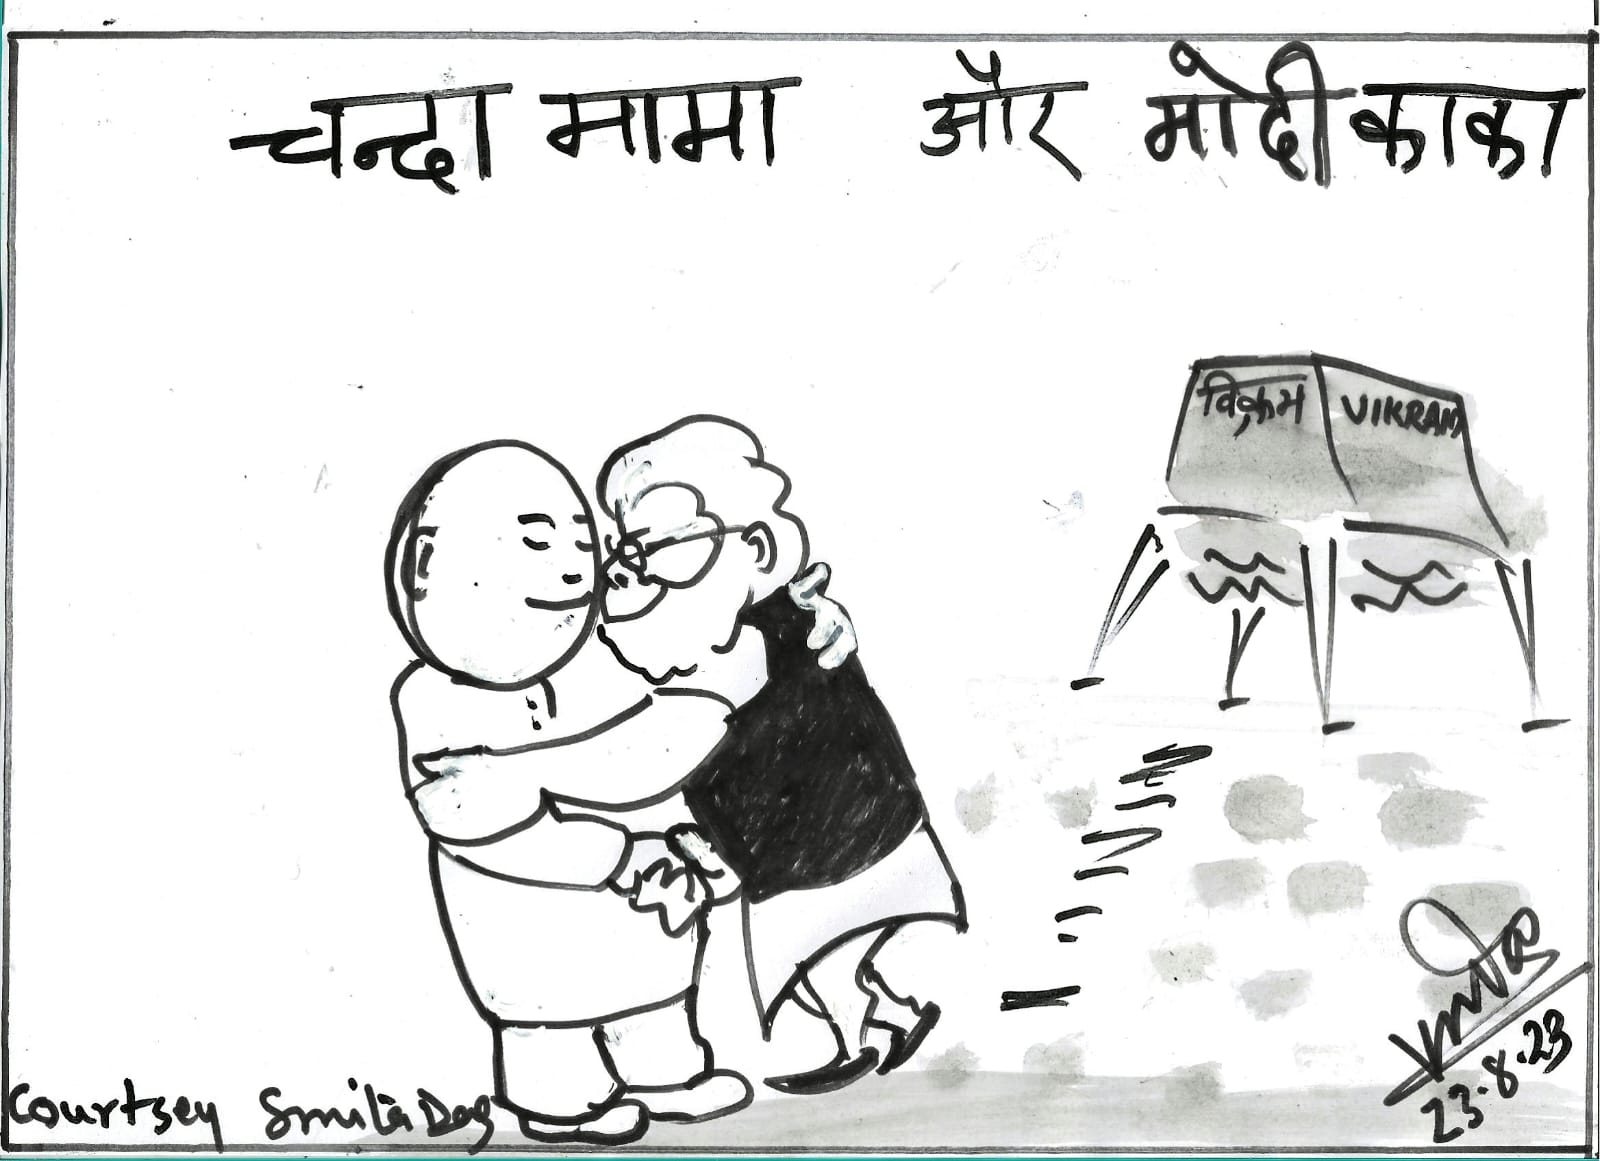 चन्दा मामा और मोदी काका
विक्रम VIKRAM
23.8.23
Courtsey Smita Das